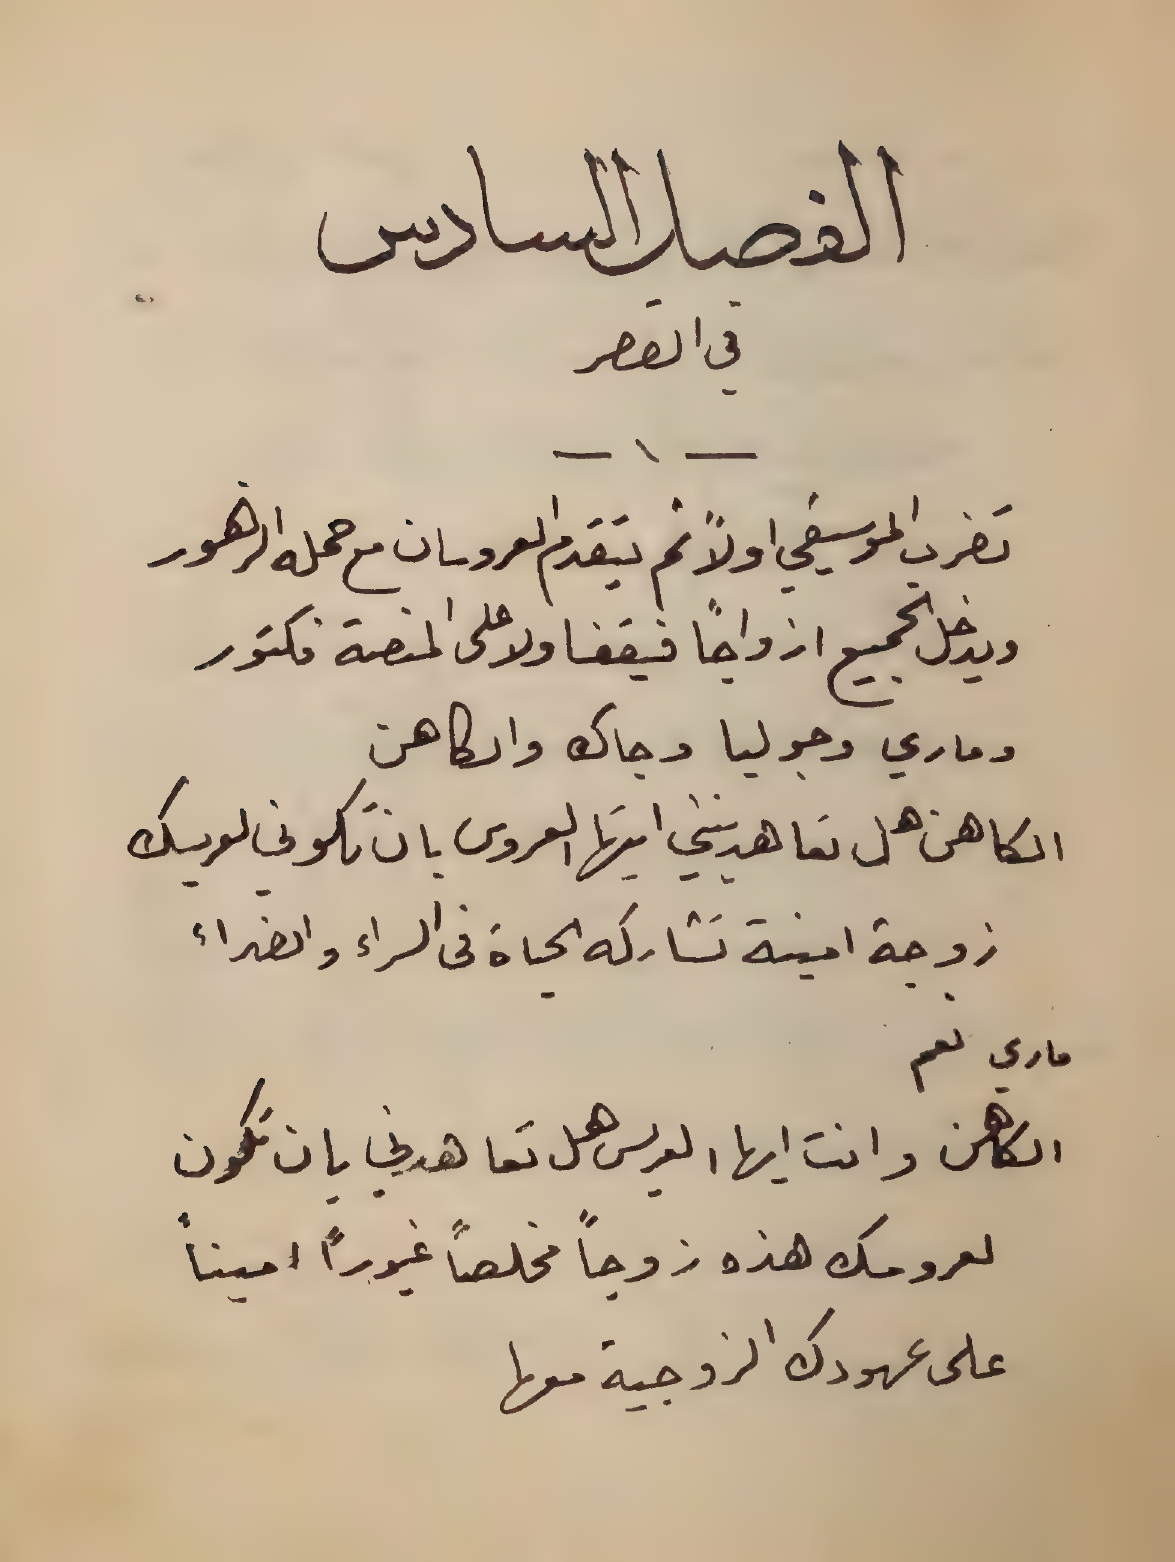 الفصل السادس
في القصر
— ١ —
تضرب الموسيقي اولاً ثم يتقدم العروسان مع حمله الزهور
ويدخل الجميع ازواجًا فيقفا ولا على المنصة فكتور
وماري وجوليا وجاك والكاهن
الكاهن هل تعاهدينني ايتها العروس بان تكوني لعريسك
زوجة امينة تشاركه الحياة في السراء والضراء
ماري نعم
الكاهن وانت ايها العريس هل تعاهدني بان تكون
لعروسك هذه زوجاً مخلصاً غيوراً اميناً
على عهودك الزوجية معها